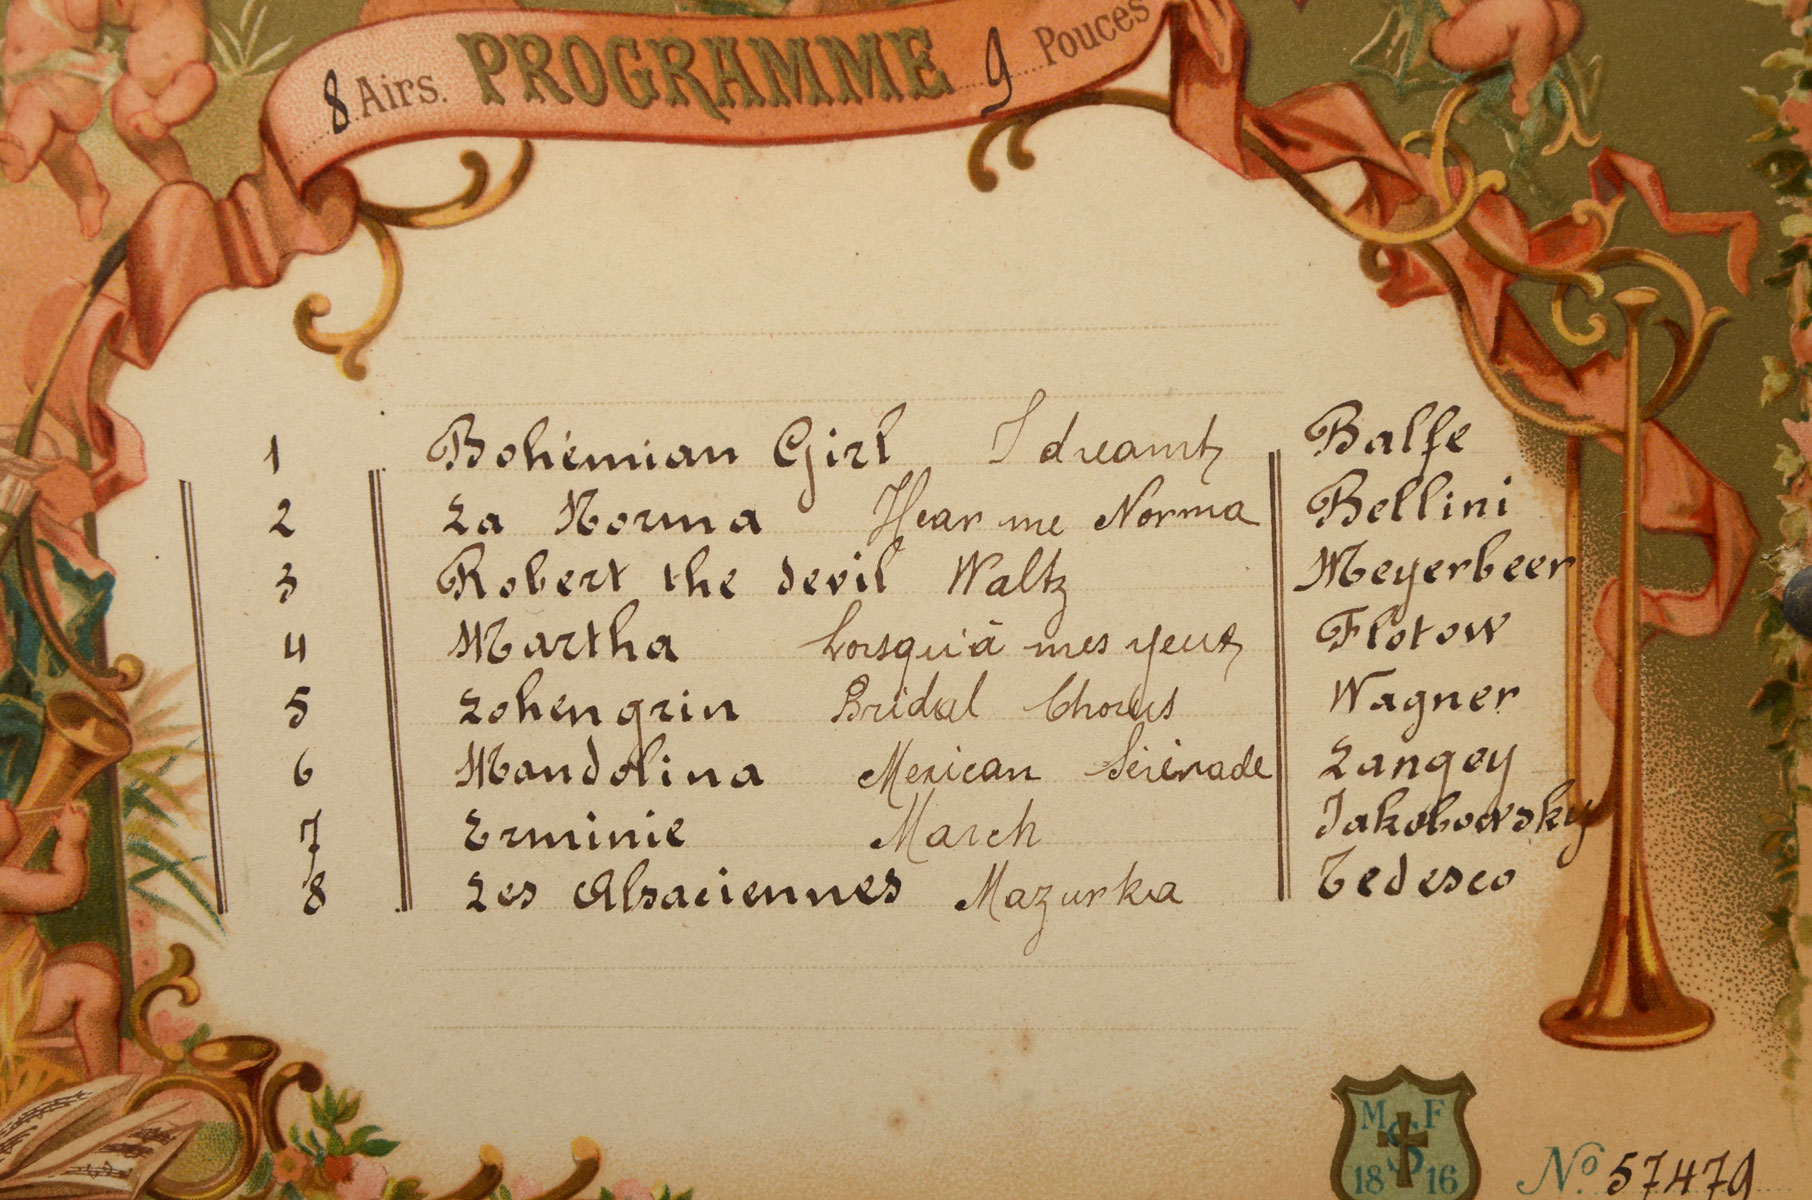 8 Airs. PROGRAMME 9 Pouces
1 Bohémian Girl I dreamt Balfe
2 La Norma Hear me Norma Bellini
3 Robert the devil Waltz Meyerbeer
4 Martha Lorsqu'à mes yeux Flotow
5 Lohengrin Bridal Chorus Wagner
6 Mandolina Mexican Sérénade Langey
7 Erminie March Jakobowsky
8 Les Alsaciennes Mazurka Tedesco
M S F
18 16
No 57479